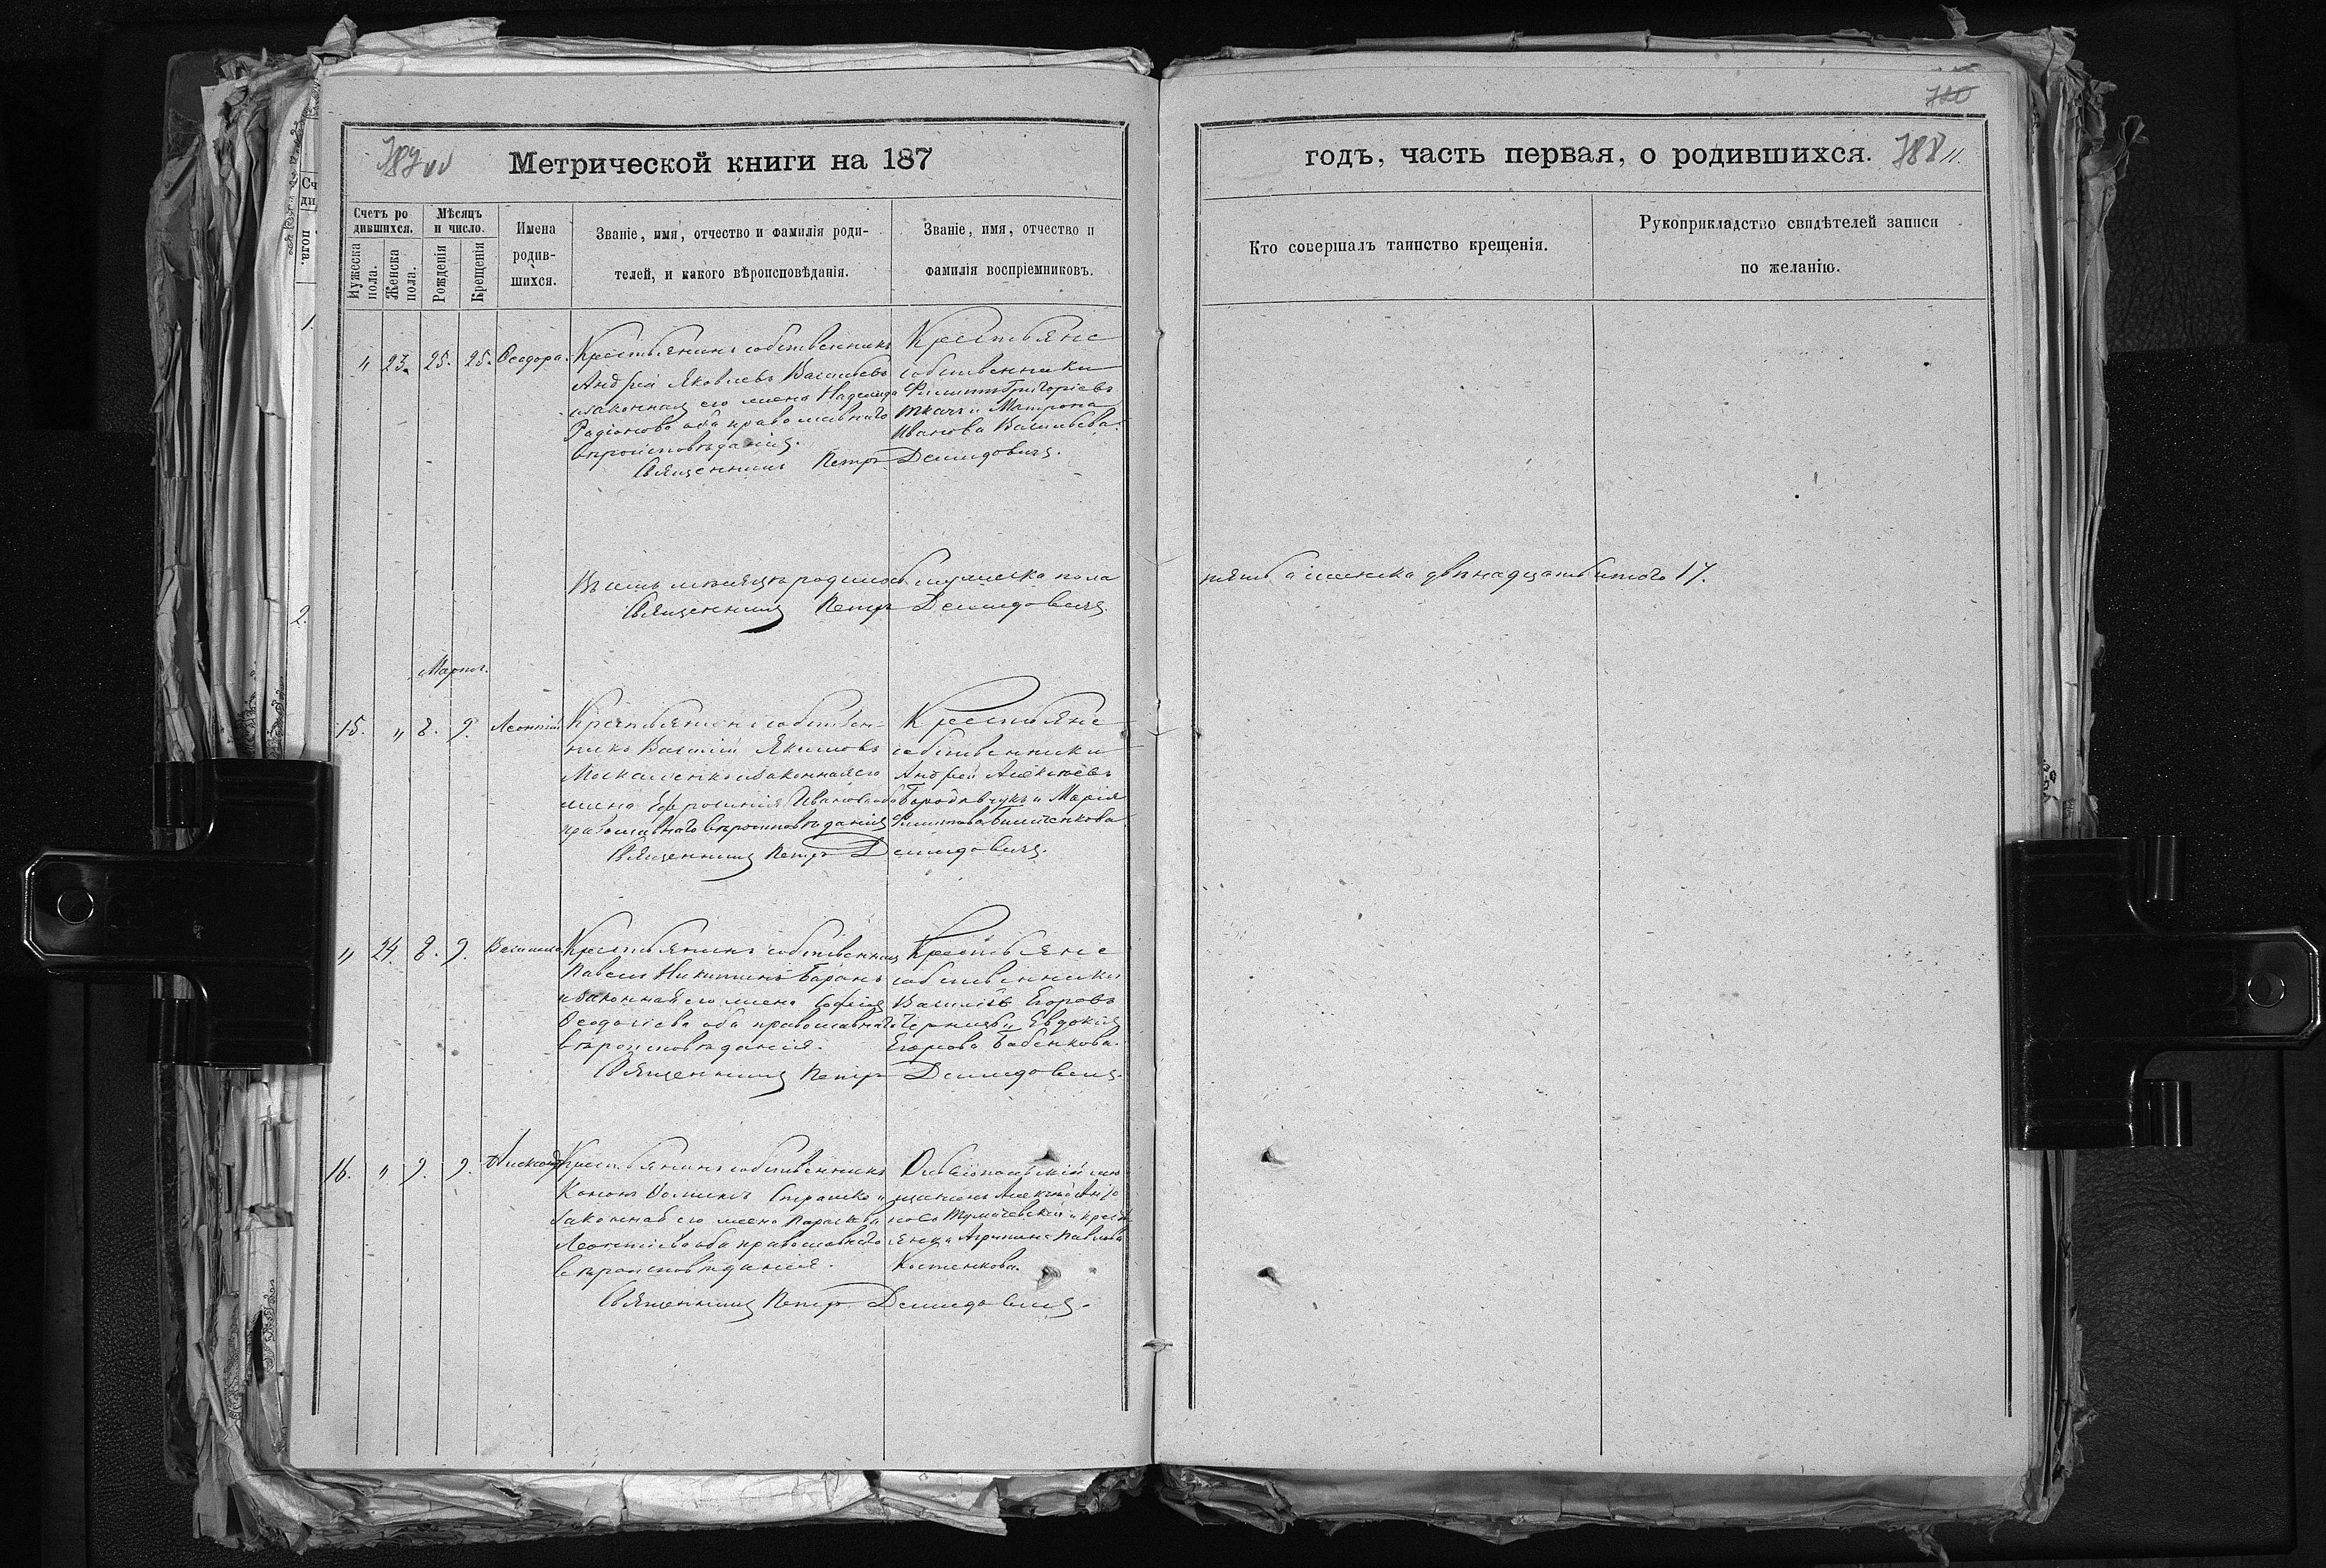 720
787 об
Метрической книги на 187
годъ, часть первая, о родившихся.
788
Счетъ ро
дившихся.
Мѣсяцъ
и число.
Имена
родив-
шихся.
Званіе, имя, отчество и фамилія роди-
телей, и какого вѣроисповѣданія.
Званіе, имя, отчество и
фамилія воспріемниковъ.
Мужеска
пола.
Женска
пола.
Рожденія
Крещенія
Кто совершалъ таинство крещенія.
Рукоприкладство свидѣтелей записи
по желанію.
" 23. 25. 25. Ѳеодора.
Крестьянинъ собственникъ
Андрей Яковлевъ Васильевъ
и законная его жена Надежда
Родіонова оба православнаго
вѣроисповѣданія.
Крестьяне
собственники
Филиппъ Григоріевъ
Ткачъ и Матрона
Иванова Васильева.
Священникъ Петръ Демидовичъ.
Въ семъ мѣсяцѣ родилось мужеска пола
пять а женска двѣнадцать итого 17.
Священникъ Петръ Демидовичъ.
Мартъ.
15. " 8. 9. Леонтій
Крестьянинъ собствен-
никъ Василій Якимовъ
Москаленко и законная его
жена Ефросинія Иванова оба
православнаго вѣроисповѣданія
Крестьяне
собственники
Андрей Алексѣевъ
Бородавчукъ и Марія
Филиппова
Священникъ Петръ Демидовичъ.
" 24. 8. 9. Василиса
Крестьянинъ собственникъ
Павелъ Никитинъ Баранъ
и законная его жена Софія
Ѳеодосіева оба православнаго
вѣроисповѣданія.
Крестьяне
собственники
Василій Егоровъ
и Евдокія
Егорова Бабенкова.
Священникъ Петръ Демидовичъ.
16. " 9. 9. Александръ
Крестьянинъ собственникъ
Кононъ Страшко и
законная его жена Параскева
Леонтіева оба православнаго
вѣроисповѣданія.
Ольвіопольскій мѣ
щанинъ Алексѣй Анто
новъ и кресть
янка Агрипина Павлова
Костенкова.
Священникъ Петръ Демидовичъ.